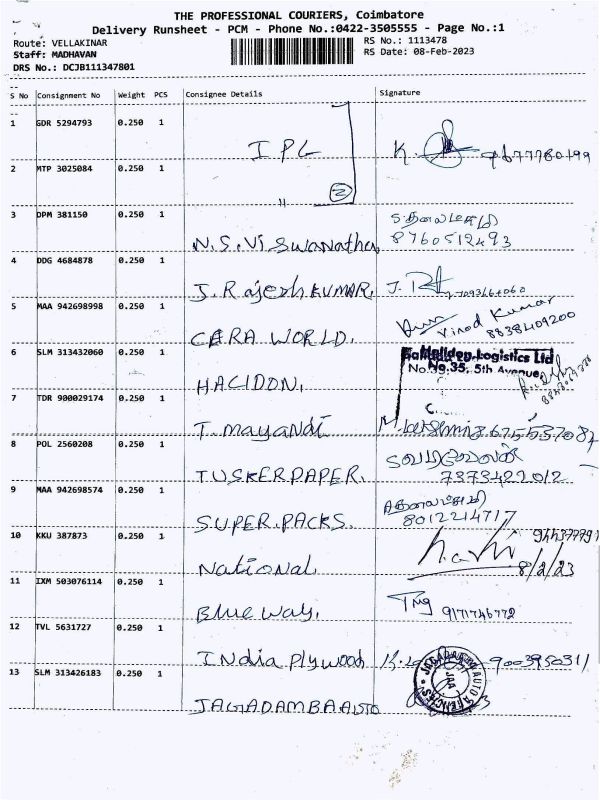 THE PROFESSIONAL COURIERS, Coimbatore
Delivery Runsheet - PCM - Phone No.:0422-3505555 - Page No.:1
Route: VELLAKINAR RS No.: 1113478
Staff: MADHAVAN RS Date: 08-Feb-2023
DRS No.: DCJB111347801
S No Consignment No Weight PCS Consignee Details Signature
1 GDR 5294793 0.250 1 IPL K.
2 MTP 3025084 0.250 1 " 2
3 DPM 381150 0.250 1 N.S. Viswanathan 8760512493
4 DDG 4684878 0.250 1 J. Rajesh KUMAR. J.
5 MAA 942698998 0.250 1 CERA WORLD. Vinod Kumar 8838409200
6 SLM 313432060 0.250 1 HACIDON. Halidon Logistics Ltd
No.35, 5th Avenue,
7 TDR 900029174 0.250 1 T. mayandi
8 POL 2560208 0.250 1 TUSKER PAPER. 7373422012
9 MAA 942698574 0.250 1 SUPER. PACKS. 8012214717
10 KKU 387873 0.250 1 National 8/2/23
11 IXM 503076114 0.250 1 Blue way. 9171746772
12 TVL 5631727 0.250 1 INdia Plywood 9003950311
13 SLM 313426183 0.250 1 JAGADAMBA Auto JAGADAMBA AUTO AGENCIES